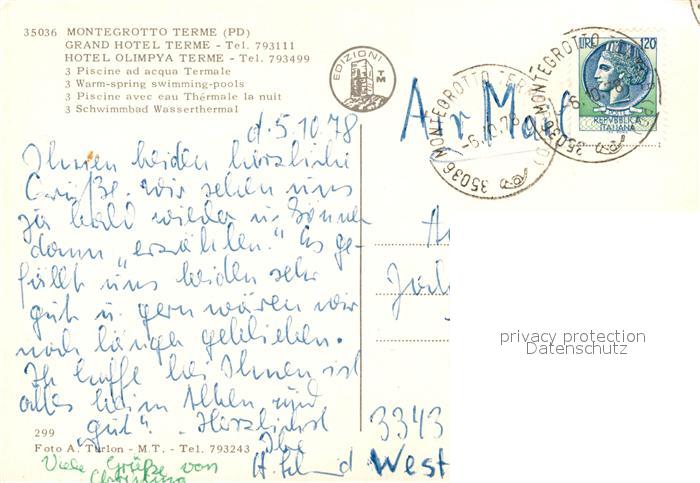 35036 MONTEGROTTO TERME (PD)
GRAND HOTEL TERME - Tel. 793111
HOTEL OLIMPYA TERME - Tel. 793499
3 Piscine ad acqua Termale
3 Warm-spring swimming-pools
3 Piscine avec eau Thérmale la nuit
3 Schwimmbad Wasserthermal
EDIZIONI
TM
35036 MONTEGROTTO TERME (PD)
-6.10.78
35036 MONTEGROTTO
6.10.78
LIRE 120
REPVBBLICA
ITALIANA
Air Mail
d. 5.10.78
Ihnen beiden herzliche
Grüße. Wir sehen uns
ja bald wieder u. können
dann „erzählen." Es ge-
fällt uns beiden sehr
gut u. gern wären wir
noch länger geblieben.
Ich hoffe bei Ihnen ist
alles beim Alten und
„gut". Herzlichst
Ihre
H.
3343
West
299
Foto A. Turlon - M.T. - Tel. 793243
Viele Grüße von
Christina
privacy protection
Datenschutz